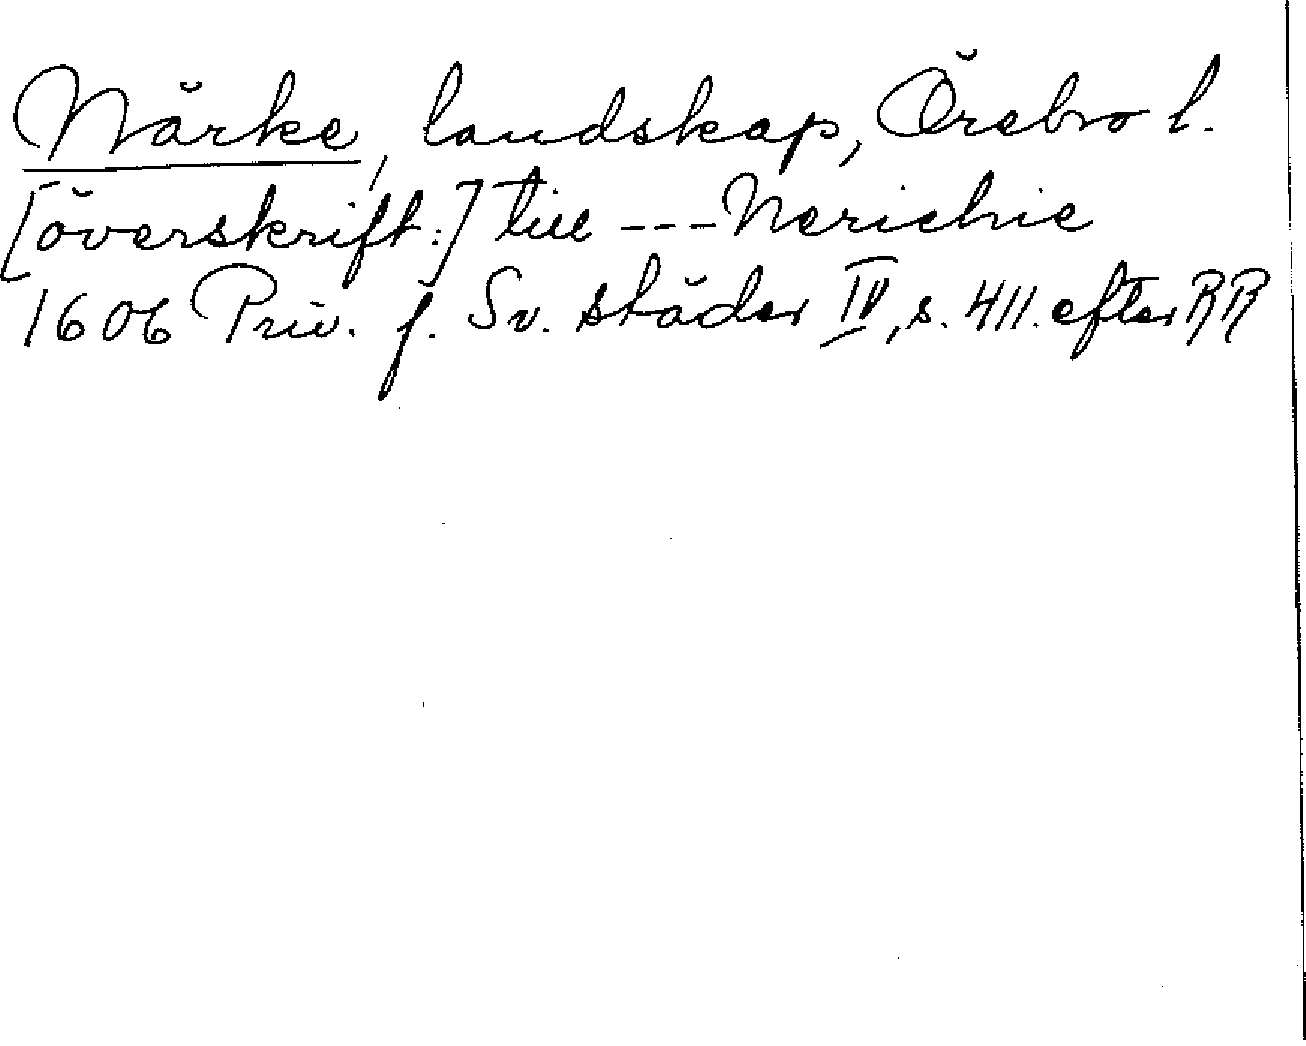 Närke, landskap, Örebro l.
[överskrift:] till --- Nerichie
1606 Priv. f. Sv. städer IV, s. 411. efter RR